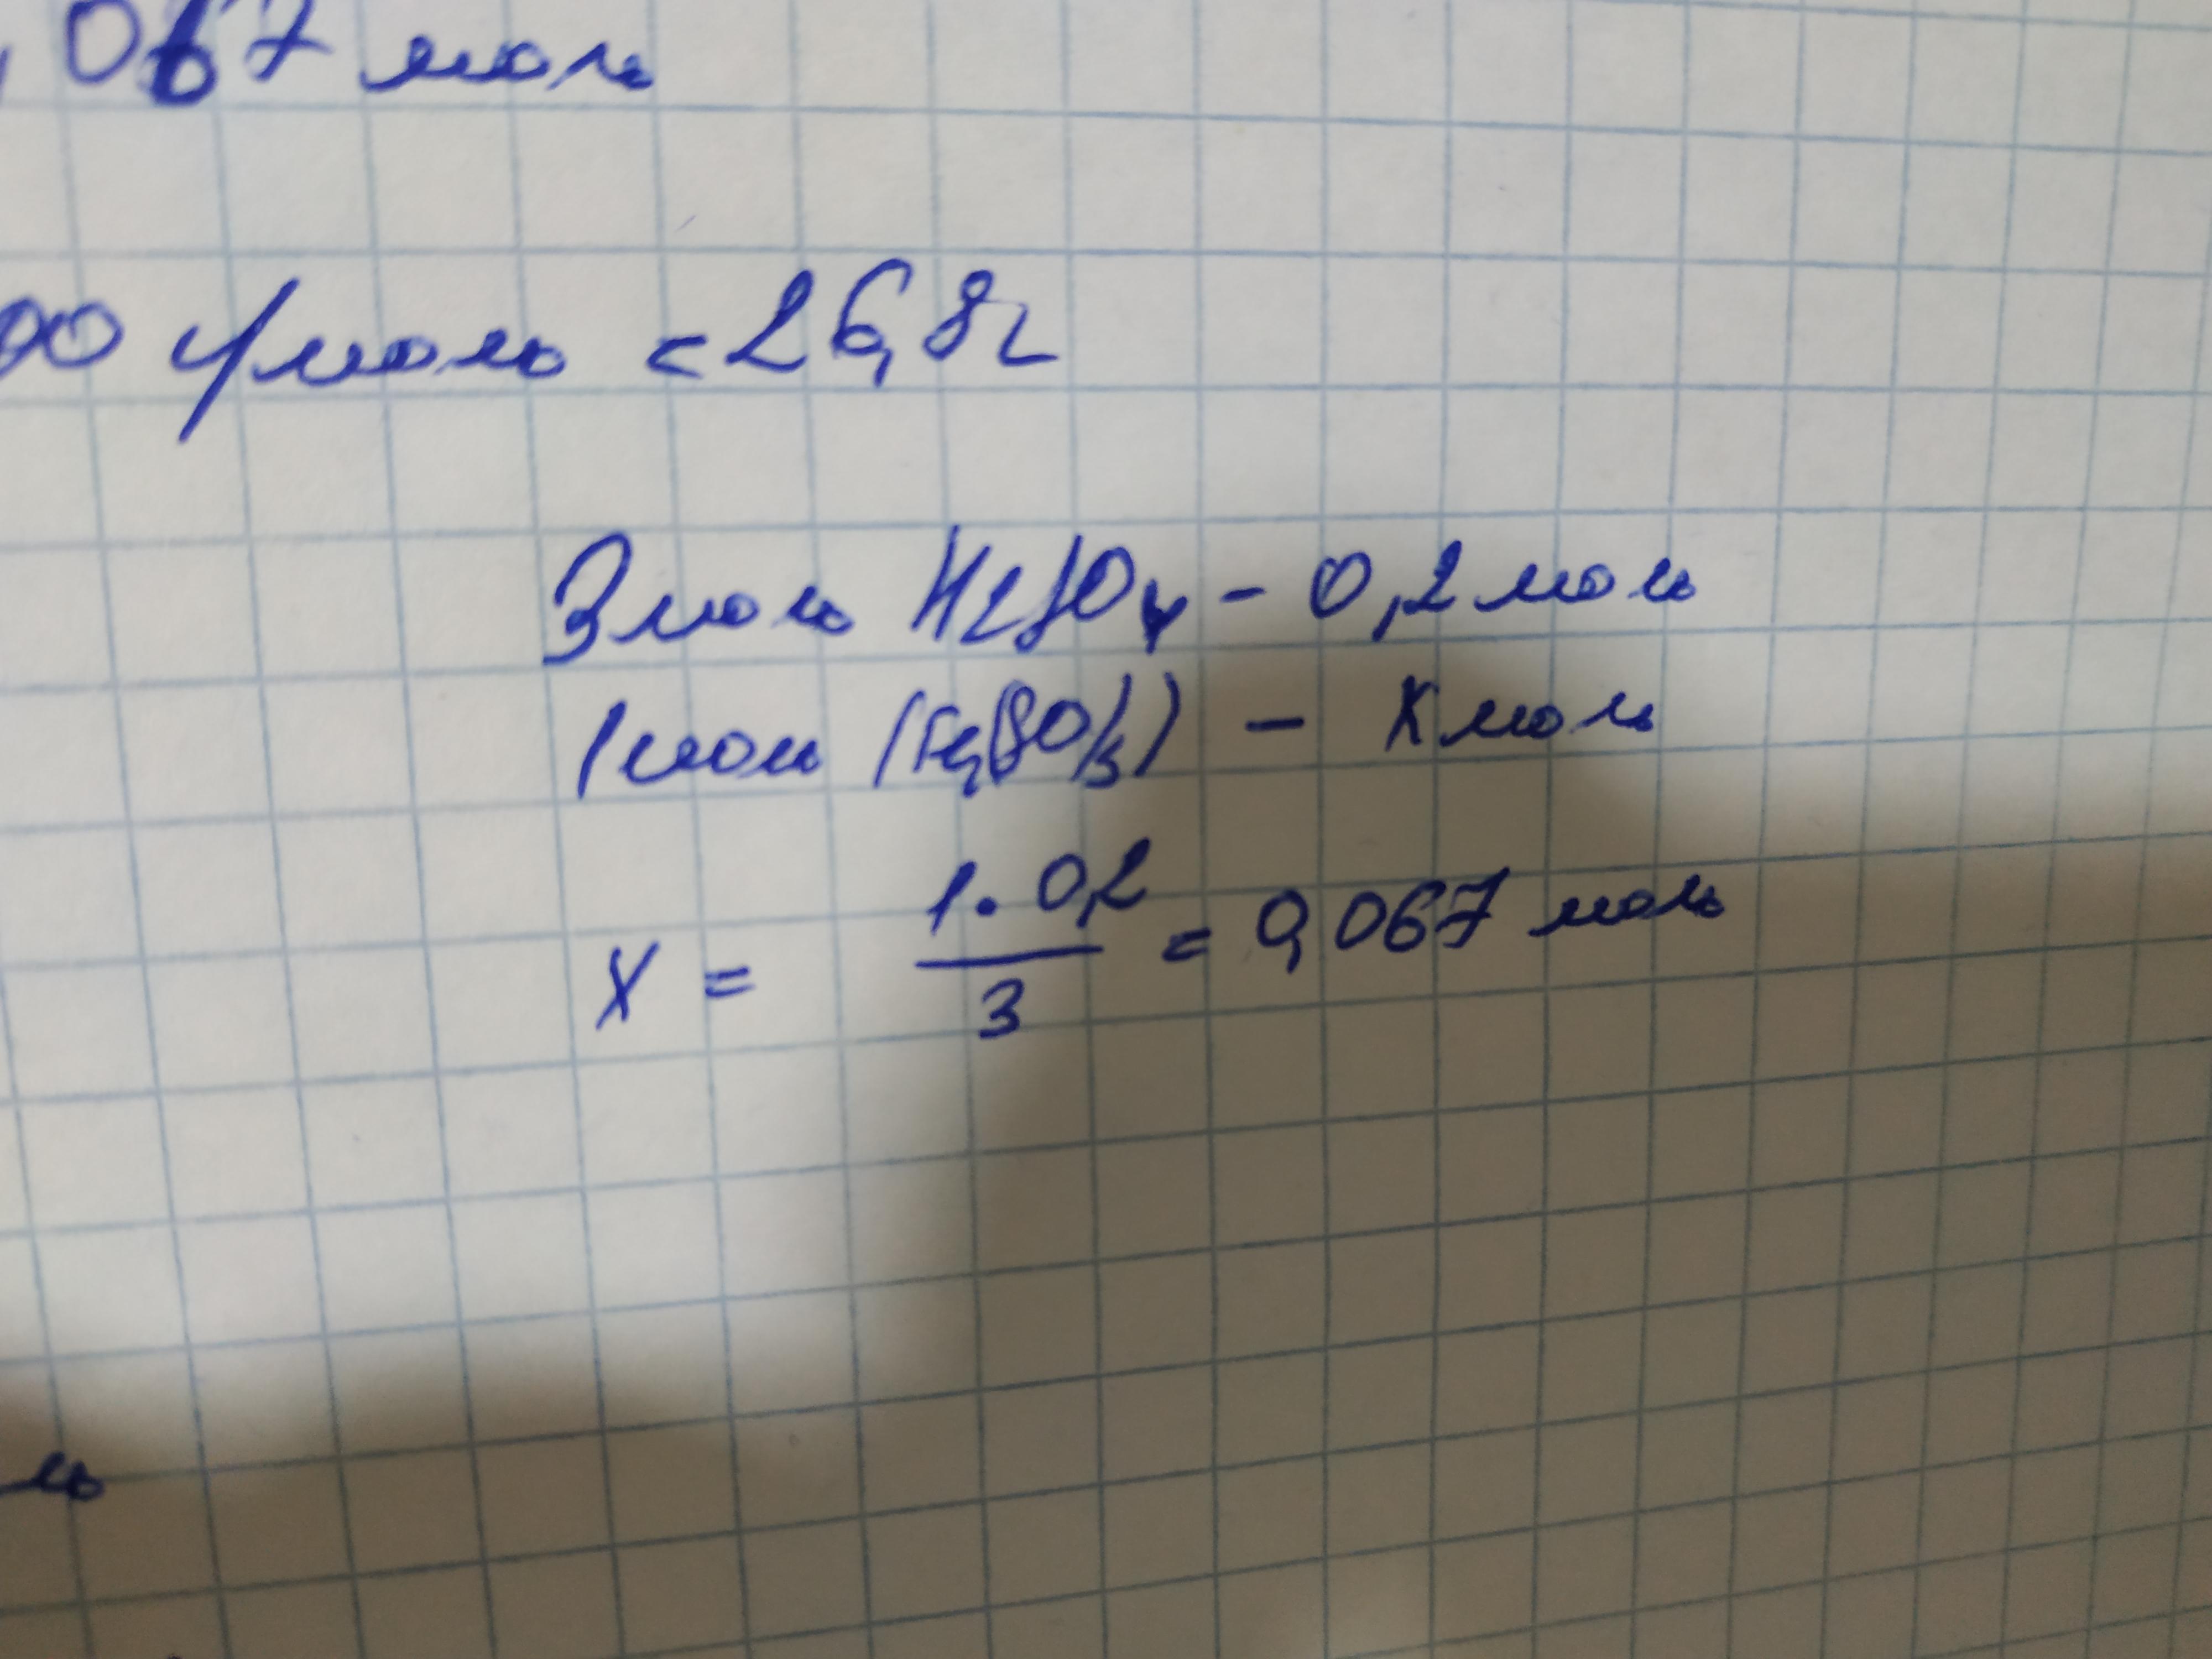 ,067 моль
00 г/моль = 26,8 г
3 моль H2SO4 - 0,2 моль
1 моль (Fe2(SO4)3) - X моль
X = 1·0,2 / 3 = 0,067 моль
ль